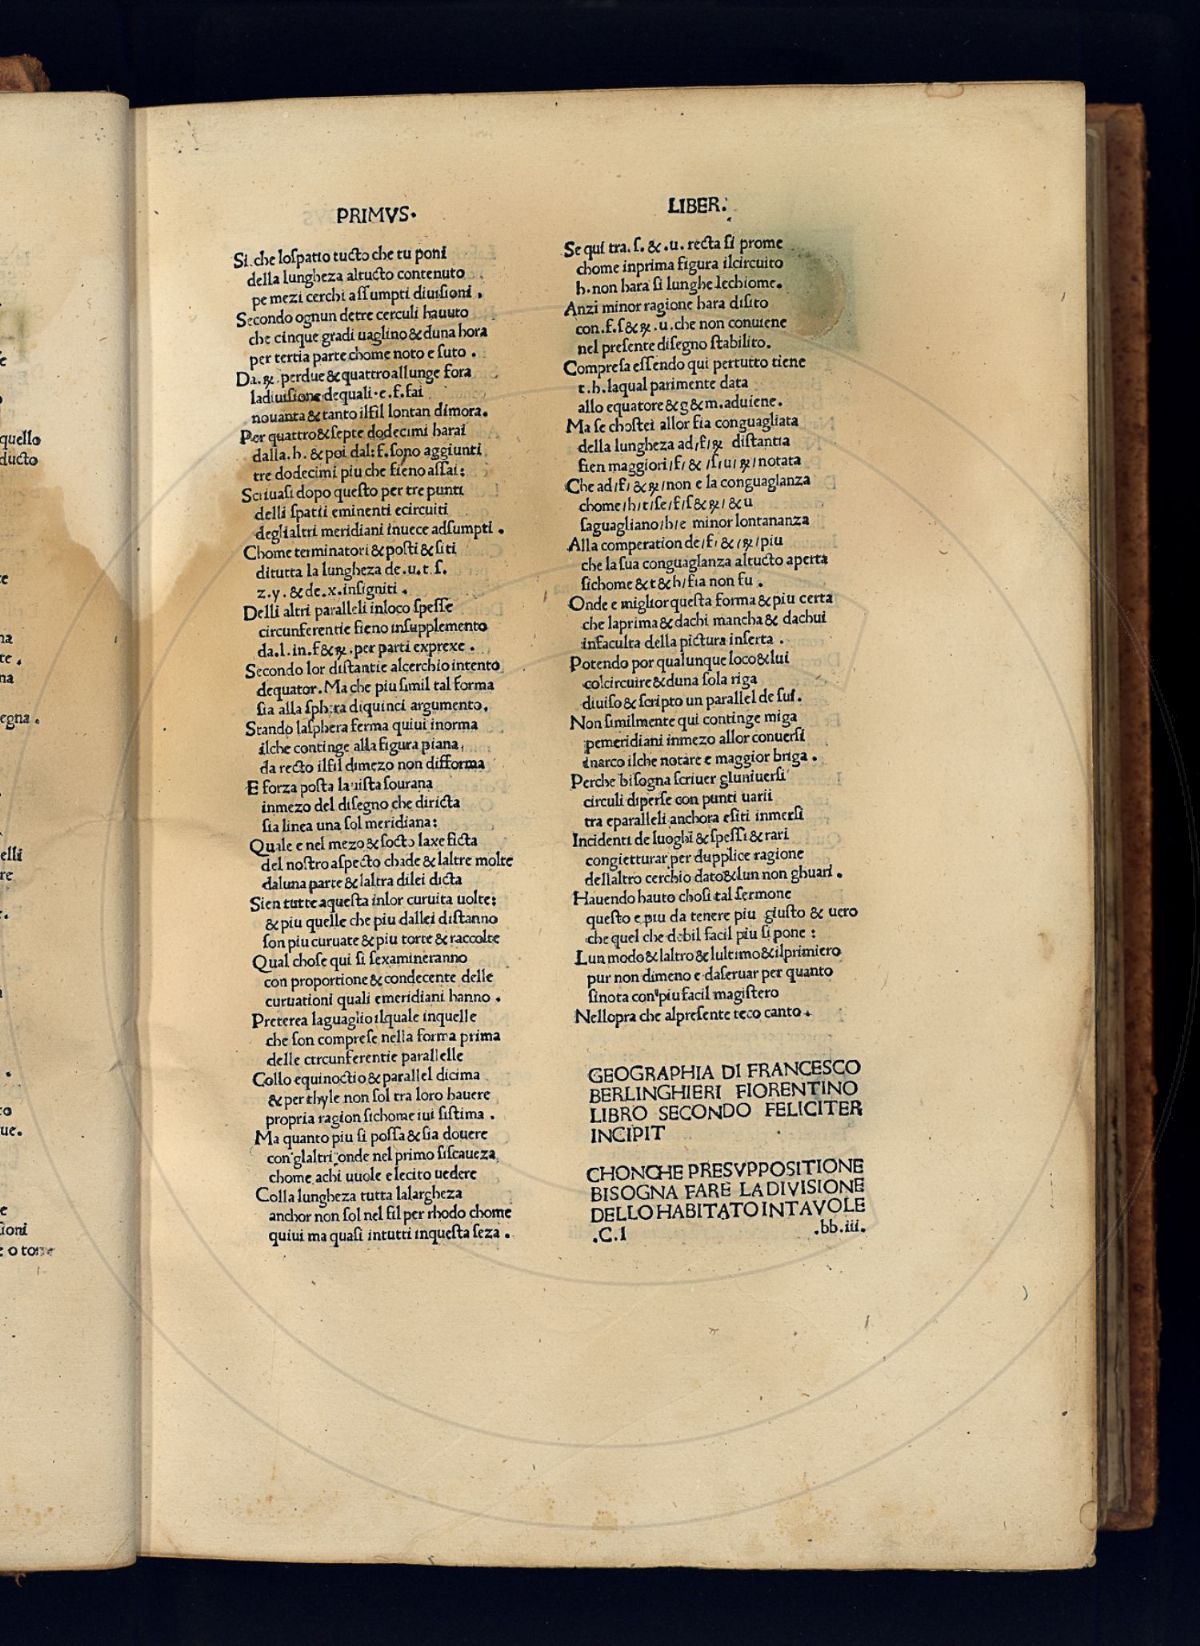 PRIMVS.
Si che loſpatio tucto che tu poni
della lungheza altucto contenuto
pe mezi cerchi aſſumpti diuiſioni .
Secondo ognun detre cerculi hauuto
che cinque gradi uaglino & duna hora
per tertia parte chome noto e ſuto .
Da. ꝶ. perdue & quattro allunge fora
ladiuiſione dequali . e. f. fai
nouanta & tanto ilfil lontan dimora.
Per quattro & ſepte dodecimi harai
dalla. h. & poi dal: f. ſono aggiunti
tre dodecimi piu che fieno aſſai:
Scriuaſi dopo queſto per tre punti
delli ſpatii eminenti ecircuiti
deglialtri meridiani inuece adſumpti .
Chome terminatori & poſti & ſiti
ditutta la lungheza de. u. t. ſ.
z. y. & de. x. inſigniti .
Delli altri paralleli inloco ſpeſſe
circunferentie fieno inſupplemento
da. l. in. f & ꝶ. per parti exprexe .
Secondo lor diſtantie alcerchio intento
dequator. Ma che piu ſimil tal forma
ſia alla ſphera diquinci argumento.
Stando laſphera ferma quiui inorma
ilche continge alla figura piana
da recto ilfil dimezo non difforma
E forza poſta lauiſta ſourana
inmezo del diſegno che diricta
ſia linea una ſol meridiana:
Quale e nel mezo & ſocto laxe ficta
del noſtro aſpecto chade & laltre molte
daluna parte & laltra dilei dicta
Sien tutte aqueſta inlor curuita uolte:
& piu quelle che piu dallei diſtanno
ſon piu curuate & piu torte & raccolte
Qual choſe qui ſi ſexamineranno
con proportione & condecente delle
curuationi quali emeridiani hanno .
Preterea laguaglio ilquale inquelle
che ſon compreſe nella forma prima
delle circunferentie parallelle
Collo equinoctio & parallel dicima
& per thyle non ſol tra loro hauere
propria ragion ſichome iui ſiſtima .
Ma quanto piu ſi poſſa & ſia douere
con glaltri onde nel primo ſiſcaueza
chome achi uuole e lecito uedere
Colla lungheza tutta lalargheza
anchor non ſol nel fil per rhodo chome
quiui ma quaſi intutti inqueſta ſeza .
LIBER.
Se qui tra. ſ. & .u. recta ſi prome
chome inprima figura ilcircuito
h. non hara ſi lunghe lechiome.
Anzi minor ragione hara diſito
con. f. ſ & ꝶ .u. che non conuiene
nel preſente diſegno ſtabilito.
Compreſa eſſendo qui pertutto tiene
t. h. laqual parimente data
allo equatore & g & m. aduiene.
Ma ſe choſtei allor fia conguagliata
della lungheza ad/f/ꝶ diſtantia
fien maggiori/f/ & /ſ/u/ꝶ/notata
Che ad/f/ & ꝶ/non e la conguaglanza
chome/h/t/ſe/f/ſ & ꝶ/ & u
ſaguagliano/h/e minor lontananza
Alla comperation de/f/ & /ꝶ/piu
che la ſua conguaglanza altucto aperta
ſichome & t & h/fia non fu .
Onde e miglior queſta forma & piu certa
che laprima & dachi mancha & dachui
infaculta della pictura inſerta .
Potendo por qualunque loco & lui
colcircuire & duna ſola riga
diuiſo & ſcripto un parallel de ſui.
Non ſimilmente qui continge miga
pemeridiani inmezo allor conuerſi
inarco ilche notare e maggior briga .
Perche biſogna ſcriuer gluniuerſi
circuli diperſe con punti uarii
tra eparalleli anchora eſiti inmerſi
Incidenti de luoghi & ſpeſſi & rari
congietturar per dupplice ragione
dellaltro cerchio dato & lun non ghuari .
Hauendo hauto choſi tal ſermone
queſto e piu da tenere piu giuſto & uero
che quel che debil facil piu ſi pone :
Lun modo & laltro & lultimo & ilprimiero
pur non dimeno e daſeruar per quanto
ſinota con piu facil magiſtero
Nellopra che alpreſente teco canto .
GEOGRAPHIA DI FRANCESCO
BERLINGHIERI FIORENTINO
LIBRO SECONDO FELICITER
INCIPIT
CHONCHE PRESVPPOSITIONE
BISOGNA FARE LA DIVISIONE
DELLO HABITATO IN TAVOLE
.C. I .bb. iii.
quello
ducto
te .
na
egna .
elli
re
ue.
ſioni
e o torre